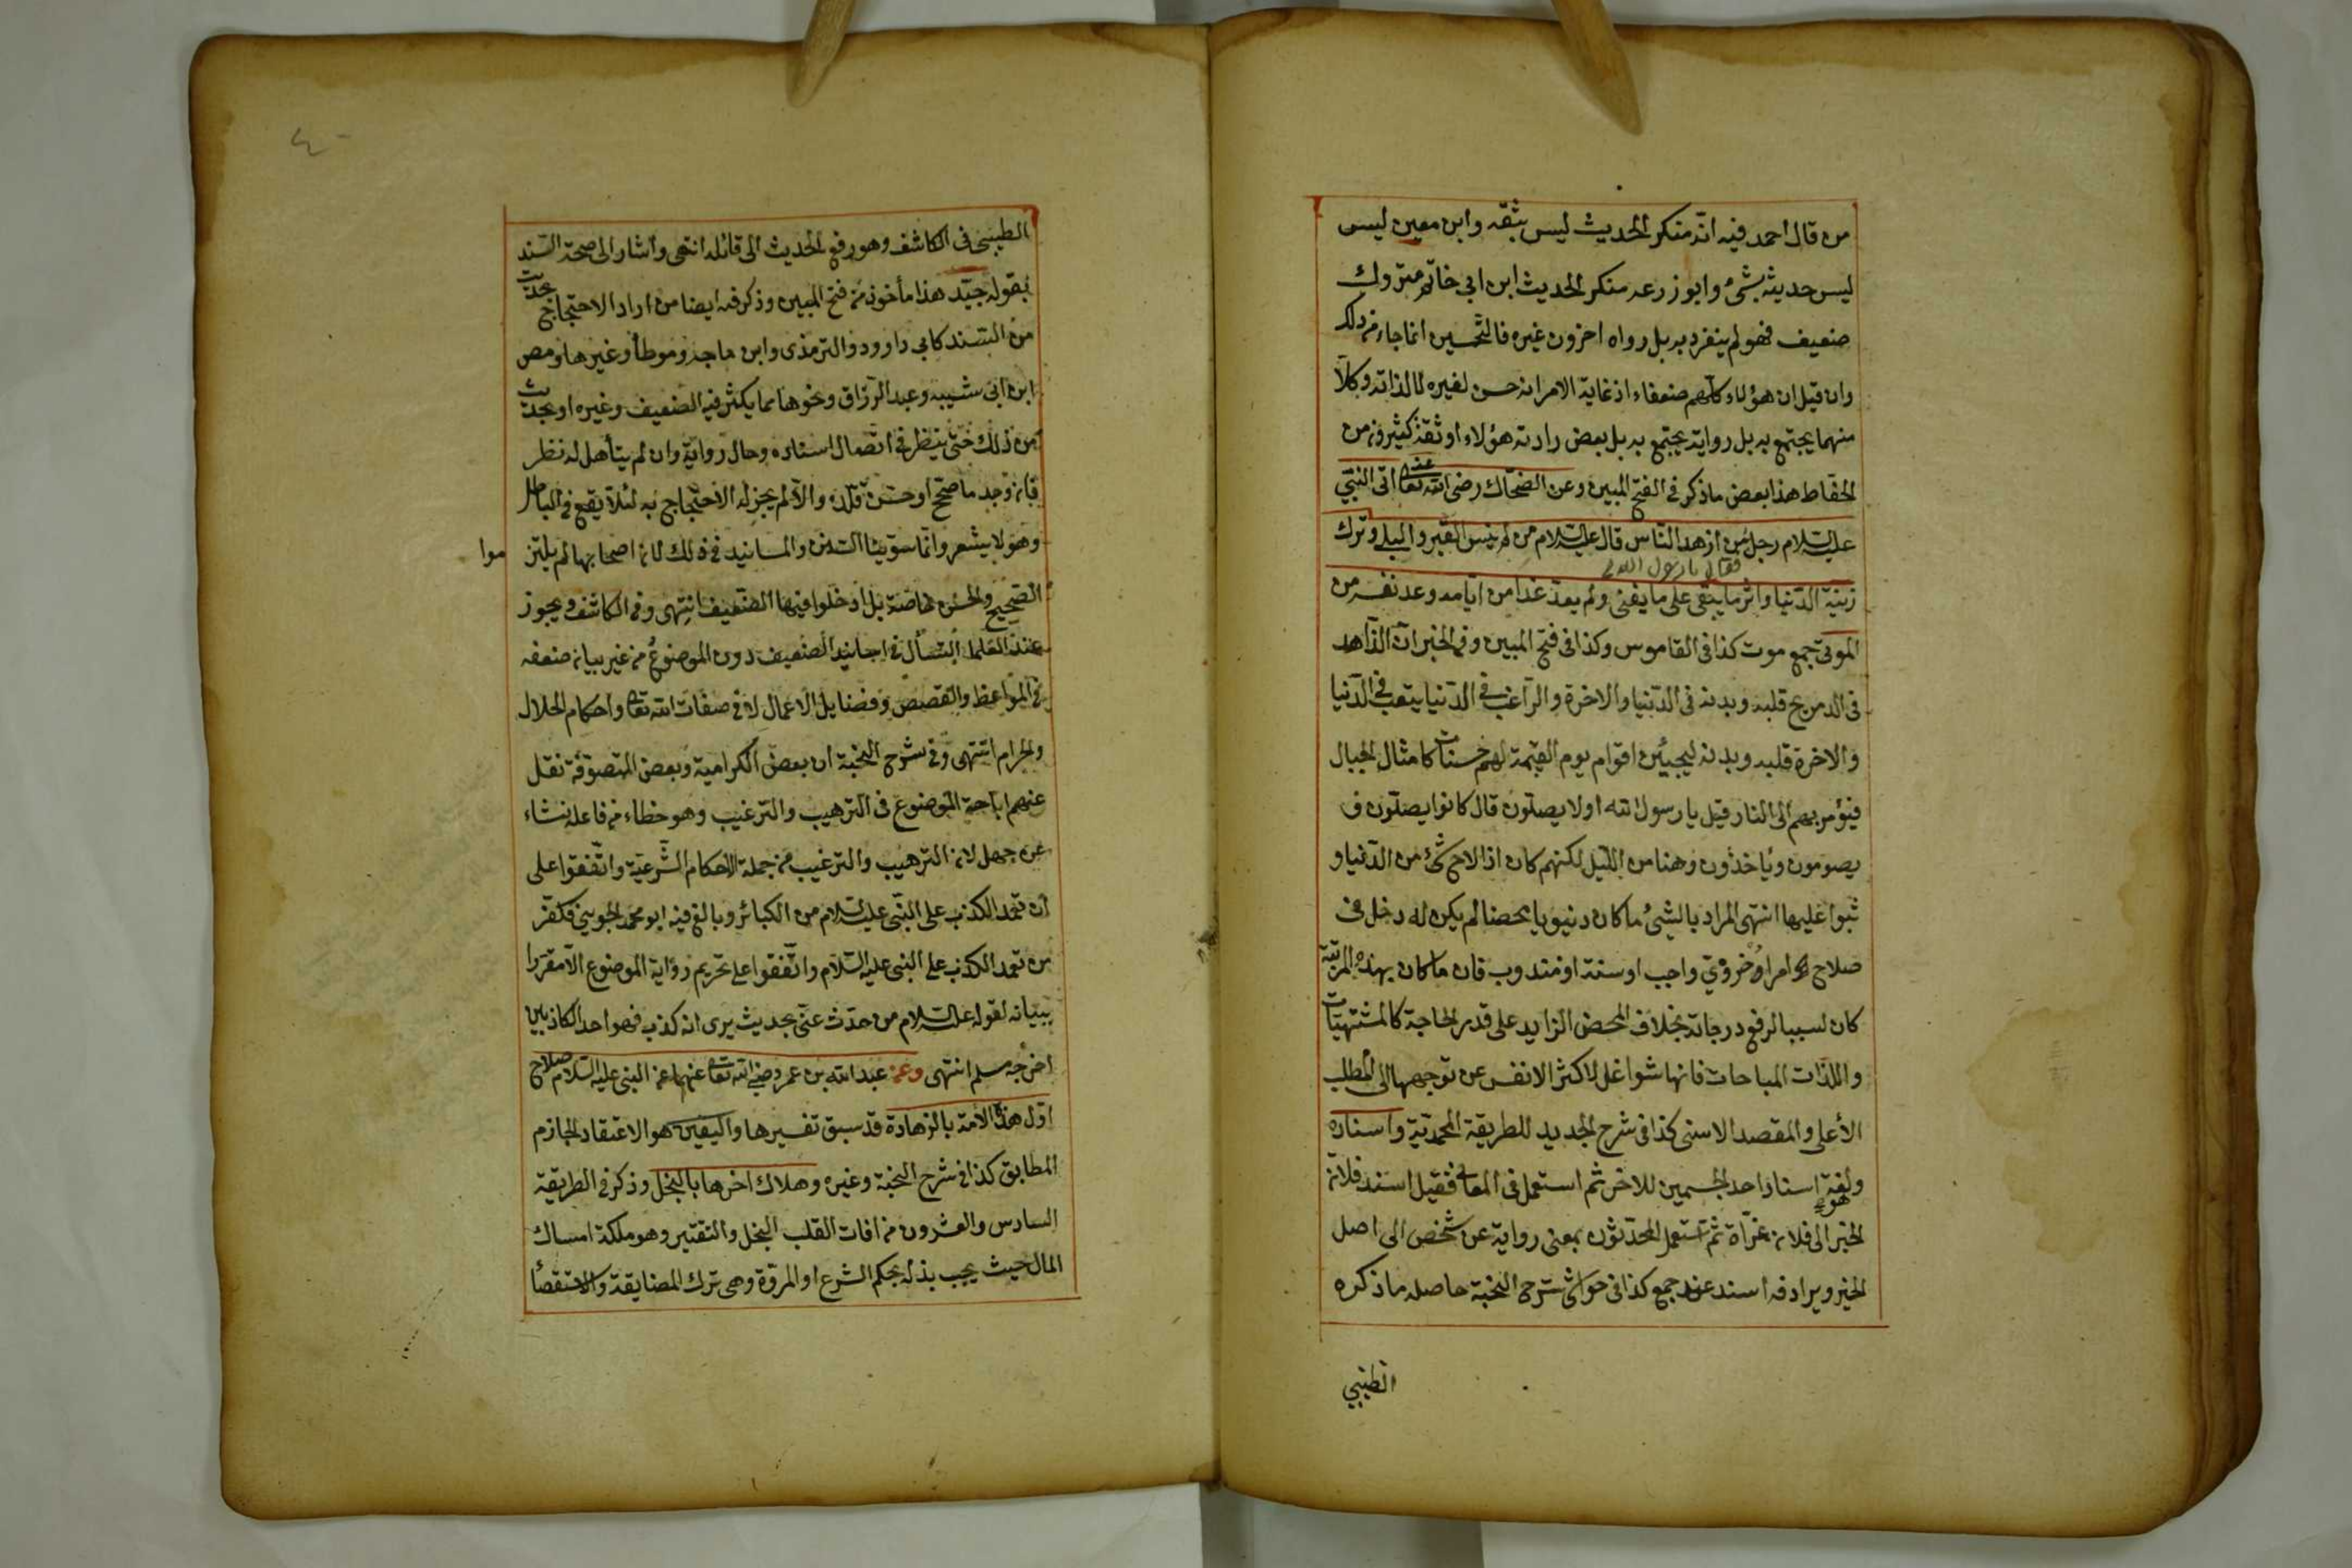 من قال احمد فيه انه منكر الحديث ليس بثقه وابن معين ليس
ليس حديثه بشئ وابو زرعه منكر الحديث ابن ابى خاتم متروك
ضعيف فهو لم ينفرد به بل رواه اخرون غيره فالتحسين انما جاء من ذلك
وان قيل ان هؤلاء كلهم ضعفاء اذ غاية الامر انه حسن لغيره لا لذاته وكلا
منهما يحتج به بل رواية يجتمع به بل بعض هؤلاء اوثقة كثيرون من
الحفاظ هذا بعض ما ذكر فى الفتح المبين وعن الضحاك رضى الله تعا عنه اتى النبى
عليه السلام رجل من ازهد الناس قال عليه السلام من لم ينس القبر والبلى وترك
فقال يا رسول الله
زينة الدنيا واثر ما يبقى على ما يفنى ولم يعد غدا من ايامه وعد نفسه من
الموتى جمع موت كذا فى القاموس وكذا فى فتح المبين وفى الخبر ان الزاهد
فى الد يريح قلبه وبدنه فى الدنيا والاخرة والراغب فى الدنيا يتعب فى الدنيا
والاخرة قلبه وبدنه ليجيئن اقوام يوم القيمة لهم حسنات كامثال الجبال
فيؤمر بهم الى النار قيل يا رسول الله اولا يصلون قال كانوا يصلون و
يصومون وياخذون وهنا من الليل لكنهم كان اذا لاح شئ من الدنيا و
ثبوا عليها انتهى المراد بالشئ ما كان دنيويا محضا لم يكن له دخل فى
صلاح امر اخروى واجب او سنة او مندوب فان ما كان بهذه المرتبة
كان لسببا لرفع درجاته بخلاف المحض الزايد على قدر الحاجة كالمشتهيات
واللذات المباحات فانها شواغل لاكثر الانفس عن توجهها الى المطلب
الأعلى والمقصد الاسنى كذا فى شرح الجديد للطريقة المحمدية واسناده
ولغة اسناد احد الجسمين للاخر ثم استعمل فى المعانى فقيل اسند فلان
هو
الخبر الى فلان عزاه ثم تستعمل المحدثون بمعنى رواية عن شخص الى اصل
الخبر ويرادفه اسند عند جمع كذا فى حواشى شرح النخبة حاصله ما ذكره
الطيبى
٤٠
الطيبى فى الكاشف وهو رفع الحديث الى قائله انتهى واشار الى صحة السند
بقوله جيد هذا مأخوذ من فتح المبين وذكر فيه ايضا من اراد الاحتجاج بحديث
من السند كابى داوود والترمذى وابن ماجه وموطأ وغيرها ومص
ابن ابى شيبه وعبد الرزاق ونحوها مما يكثر فيه الضعيف وغيره او بحديث
من ذلك حتى ينظر فى اتصال اسناده وحال رواية وان لم يتأهل له نظر
فان وجد ما صح او حسن قلده والا لم يجز له الاحتجاج به لئلا يقع فى الباطل
وهو لا يشعر وانما سوينا السنن والمسانيد فى ذلك لان اصحابها لم يلتز
موا
الصحيح والحسن خاصة بل ادخلوا فيها الضعيف انتهى وفى الكاشف ويجوز
عند العلما التساهل فى اسانيد الضعيف دون الموضوع من غير بيان ضعفه
فى المواعظ والقصص وفضايل الاعمال لا فى صفات الله تعا واحكام الحلال
والحرام انتهى وفى شرح النخبة ان بعض الكرامية وبعض المتصوفة نقل
عنهم اباحة الموضوع فى الترهيب والترغيب وهو خطاء من فاعله نشاء
عن جهل لان الترهيب والترغيب من جملة الاحكام الشرعية واتفقوا على
ان تعمد الكذب على النبى عليه السلام من الكبائر وبالغ فيه ابو محمد الجوينى فكفر
من تعمد الكذب على النبى عليه السلام واتفقوا على تحريم رواية الموضوع الا مقرونا
ببيانه لقوله عليه السلام من حدث عنى بحديث يرى انه كذب فهو احد الكاذبين
اخرجه مسلم انتهى وعن عبد الله بن عمر رضى الله تعا عنهما عن النبى عليه السلام صلاح
اول هذه الامة بالزهادة قد سبق تفسيرها واليقين هو الاعتقاد الجازم
المطابق كذا فى شرح النخبة وغيره وهلاك اخرها بالبخل وذكر فى الطريقة
السادس والعشرون من افات القلب البخل والتقتير وهو ملكة امساك
المال حيث يجب بذله بحكم الشرع او المروة وهى ترك المضايقة والاستقصأ